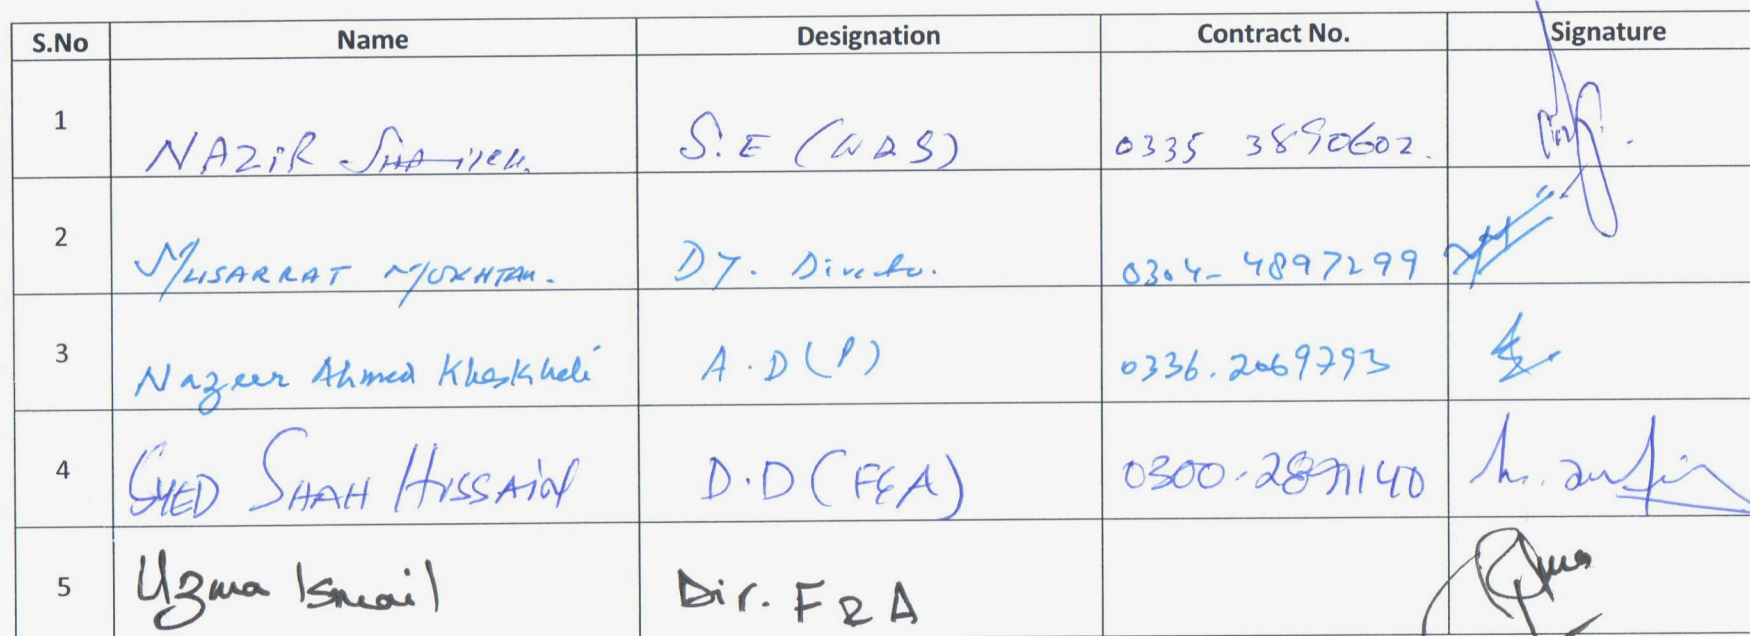 S.No Name Designation Contract No. Signature
1 NAZIR SHAIKH. S.E (W&S) 0335 3890602.
2 MUSARRAT MUKHTAR. DY. Director. 0304-4897299
3 Nazeer Ahmed Khaskheli A.D (P) 0336.2069793
4 SYED SHAH HUSSAIN D.D (F&A)
5 Uzma Ismail Dir. F&A